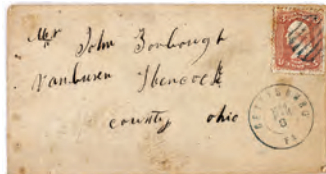 Mr John Zorbaugh
Vanburen Hancock
county ohio
GETTYSBURG
PA